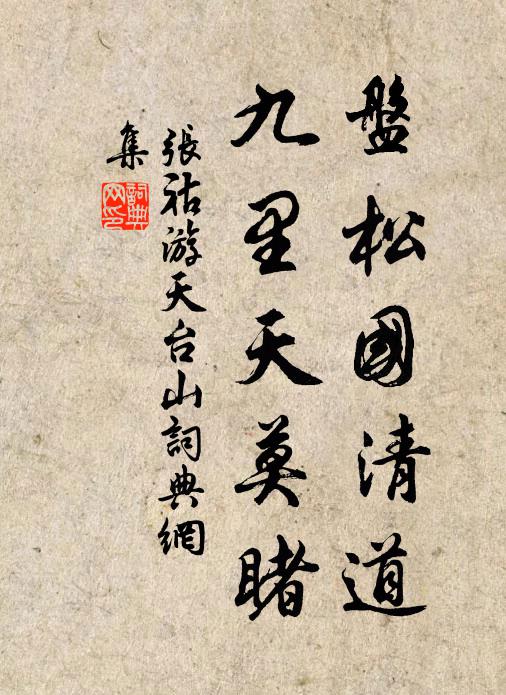 盤松國清道
九里天莫睹
張祜游天台山詞典網
集
詞典
网印